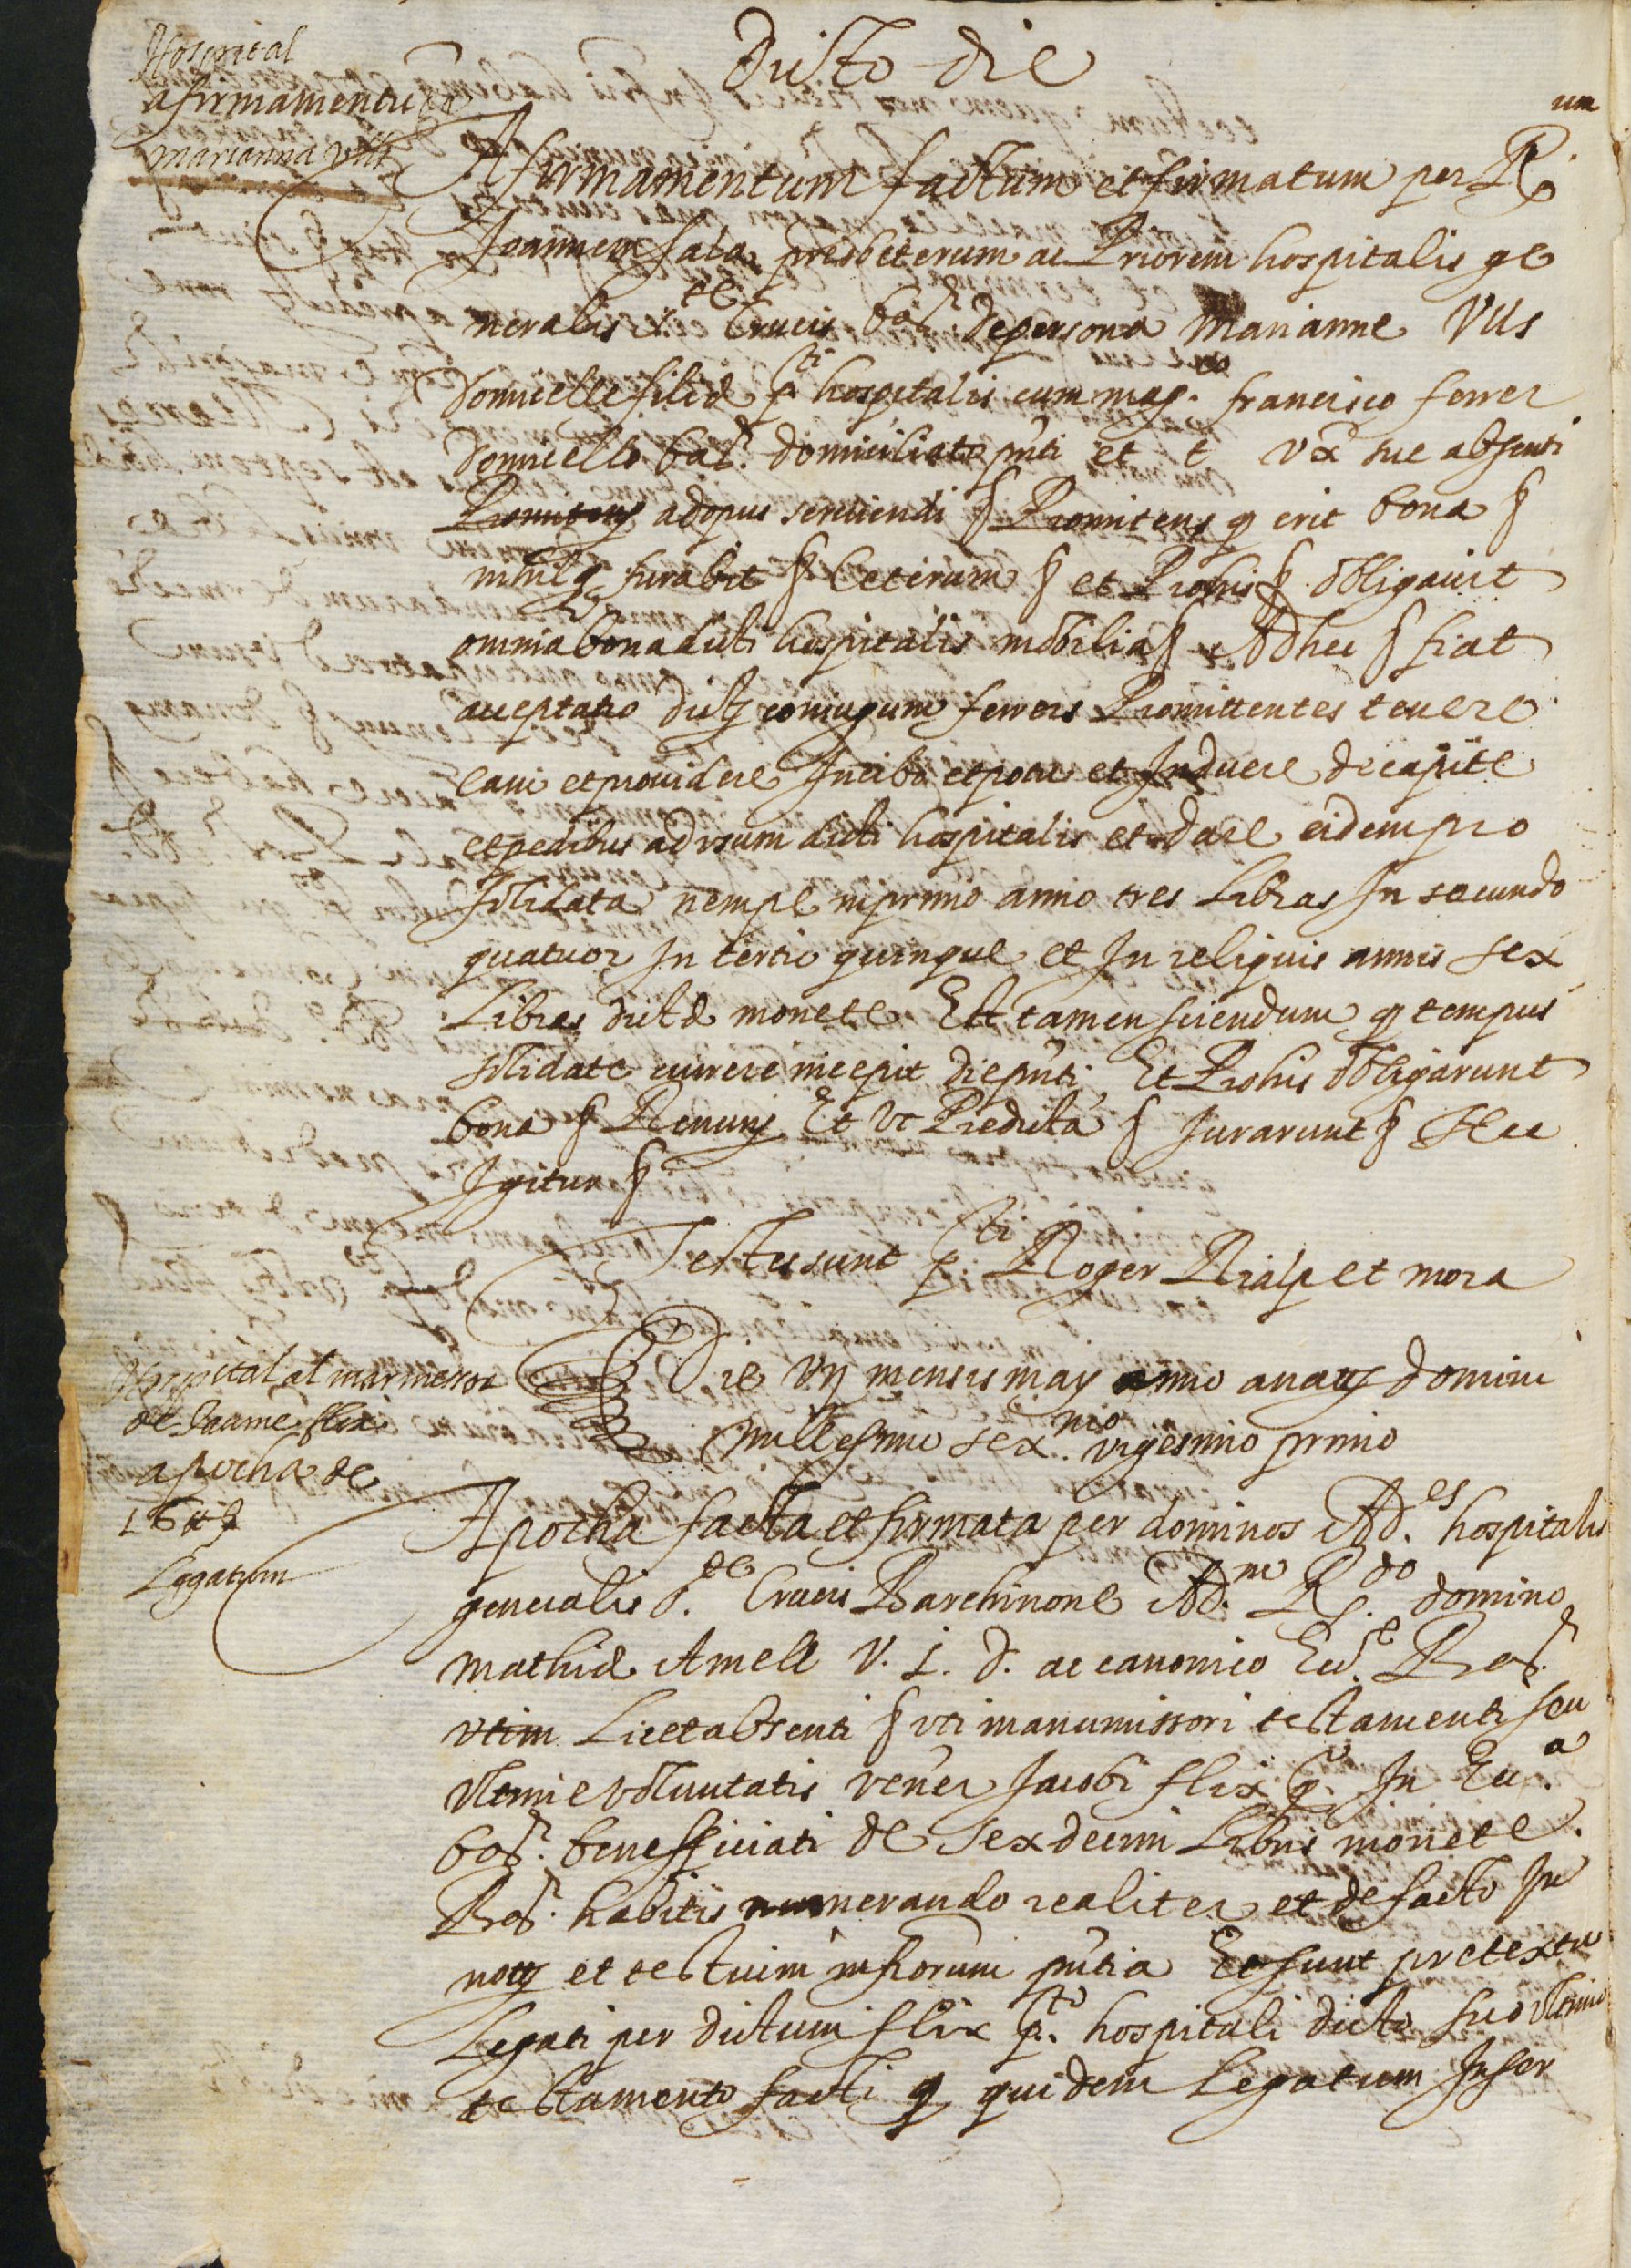 Dicto die
Hospital
afirmamentum
marianna vills
Afirmamentum factum et firmatum per R.um
Joannem sala presbiterum ac Priorem hospitalis ge
neralis S.te Crucis bar. de persona Marianne Vils
domicelle filie p.ti hospitalis cum mag.co francisco ferrer
domicello bar. domiciliato pnti et t vx sue absenti
Promitens ad opus serviendi § Promitens q erit bona §
nihil q furabit § Ceterum § et Prohis § obligavit
omnia bona dicti hospitalis mobilia § Ad hec § fiat
acceptatio dictz coniugum ferrers Promittentes tenere
eam et providere In cibo et potu et Induere de capite
et pedibus ad usum dicti hospitalis et dare eidem pro
solidata nempe in primo anno tres Libras In secundo
quatuor In tertio quinque et In reliquis annis sex
Libras dicte monete Est tamen sciendum q tempus
solidate currere incepit die pnti Et Prohis obligarunt
bona § Renunj Et Vt Predicta § Jurarunt § Hec
Igitur §
Testes sunt p.ti Roger Rialp et mora
Hospital al marmessor
de Jaume flix
apocha de
Legatum
Die vij mensis maij anno a natz domini
millesimo sex.mo vigesimo primo
Apocha facta et firmata per dominos Ad.es hospitalis
generalis S.te Crucis Barchinone Ad.m R.do domino
mathie Amell V. J. D. ac canonico Ecc.e Bar.
vtim Licet absenti § uti manumissori testamenti seu
vltime voluntatis vener Jacobi flix q In Ecc.a
bar. benefficiati de Sexdecim Libris monete
Bar. habitis numerando realiter et de facto In
notz et testium infrorum pntia Et sunt pretextu
Legati per dictum flix p.to hospitali dicto suo vltimo
testamento facti q quidem Legatum Infer